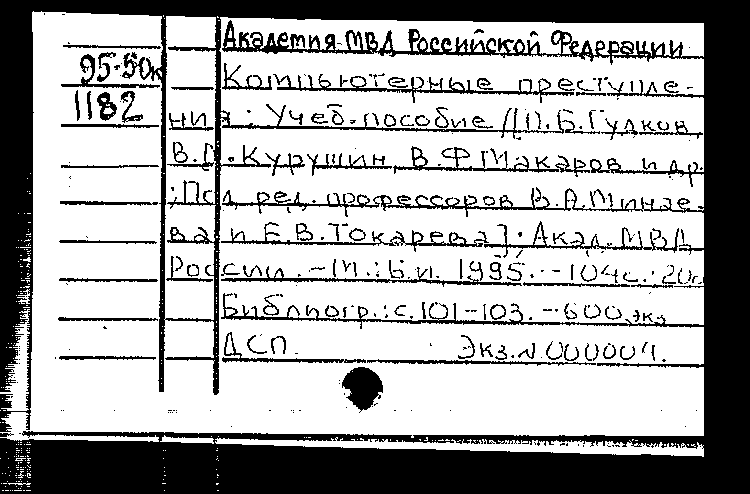 Академия МВД Российской Федерации
95-50к
Компьютерные преступле-
1182
ния: Учеб. пособие /[П.Б.Гудков,
В.Д.Курушин, В.Ф.Макаров и др.
; Под ред. профессоров В.А.Минае-
ва и Е.В.Токарева]; Акад. МВД
России. - М.: Б.и. 1995. - 104с.; 20см
Библиогр.: с.101-103. - 600 экз
ДСП. Экз.N 000004.